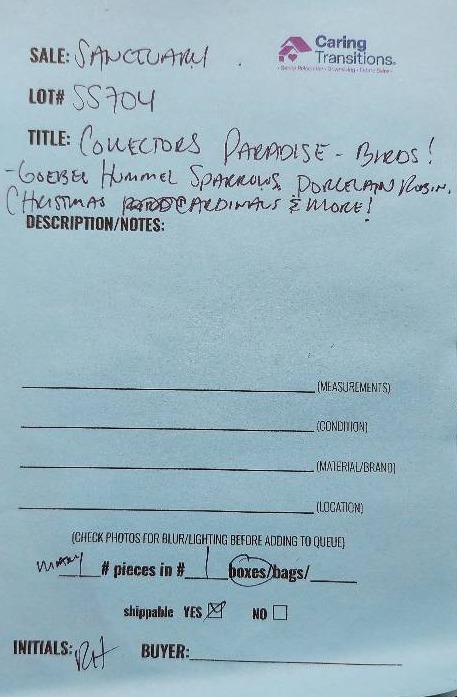 SALE: SANCTUARY
Caring
Transitions.
Senior Relocation • Downsizing • Estate Sales
LOT# SS704
TITLE: COLLECTORS PARADISE - BIRDS!
-GOEBEL HUMMEL SPARROWS, PORCELAIN ROBIN,
CHRISTMAS CARDINALS & MORE!
DESCRIPTION/NOTES:
(MEASUREMENTS)
(CONDITION)
(MATERIAL/BRAND)
(LOCATION)
(CHECK PHOTOS FOR BLUR/LIGHTING BEFORE ADDING TO QUEUE)
many # pieces in # 1 boxes/bags/
shippable YES ☒ NO ☐
INITIALS: RH BUYER: